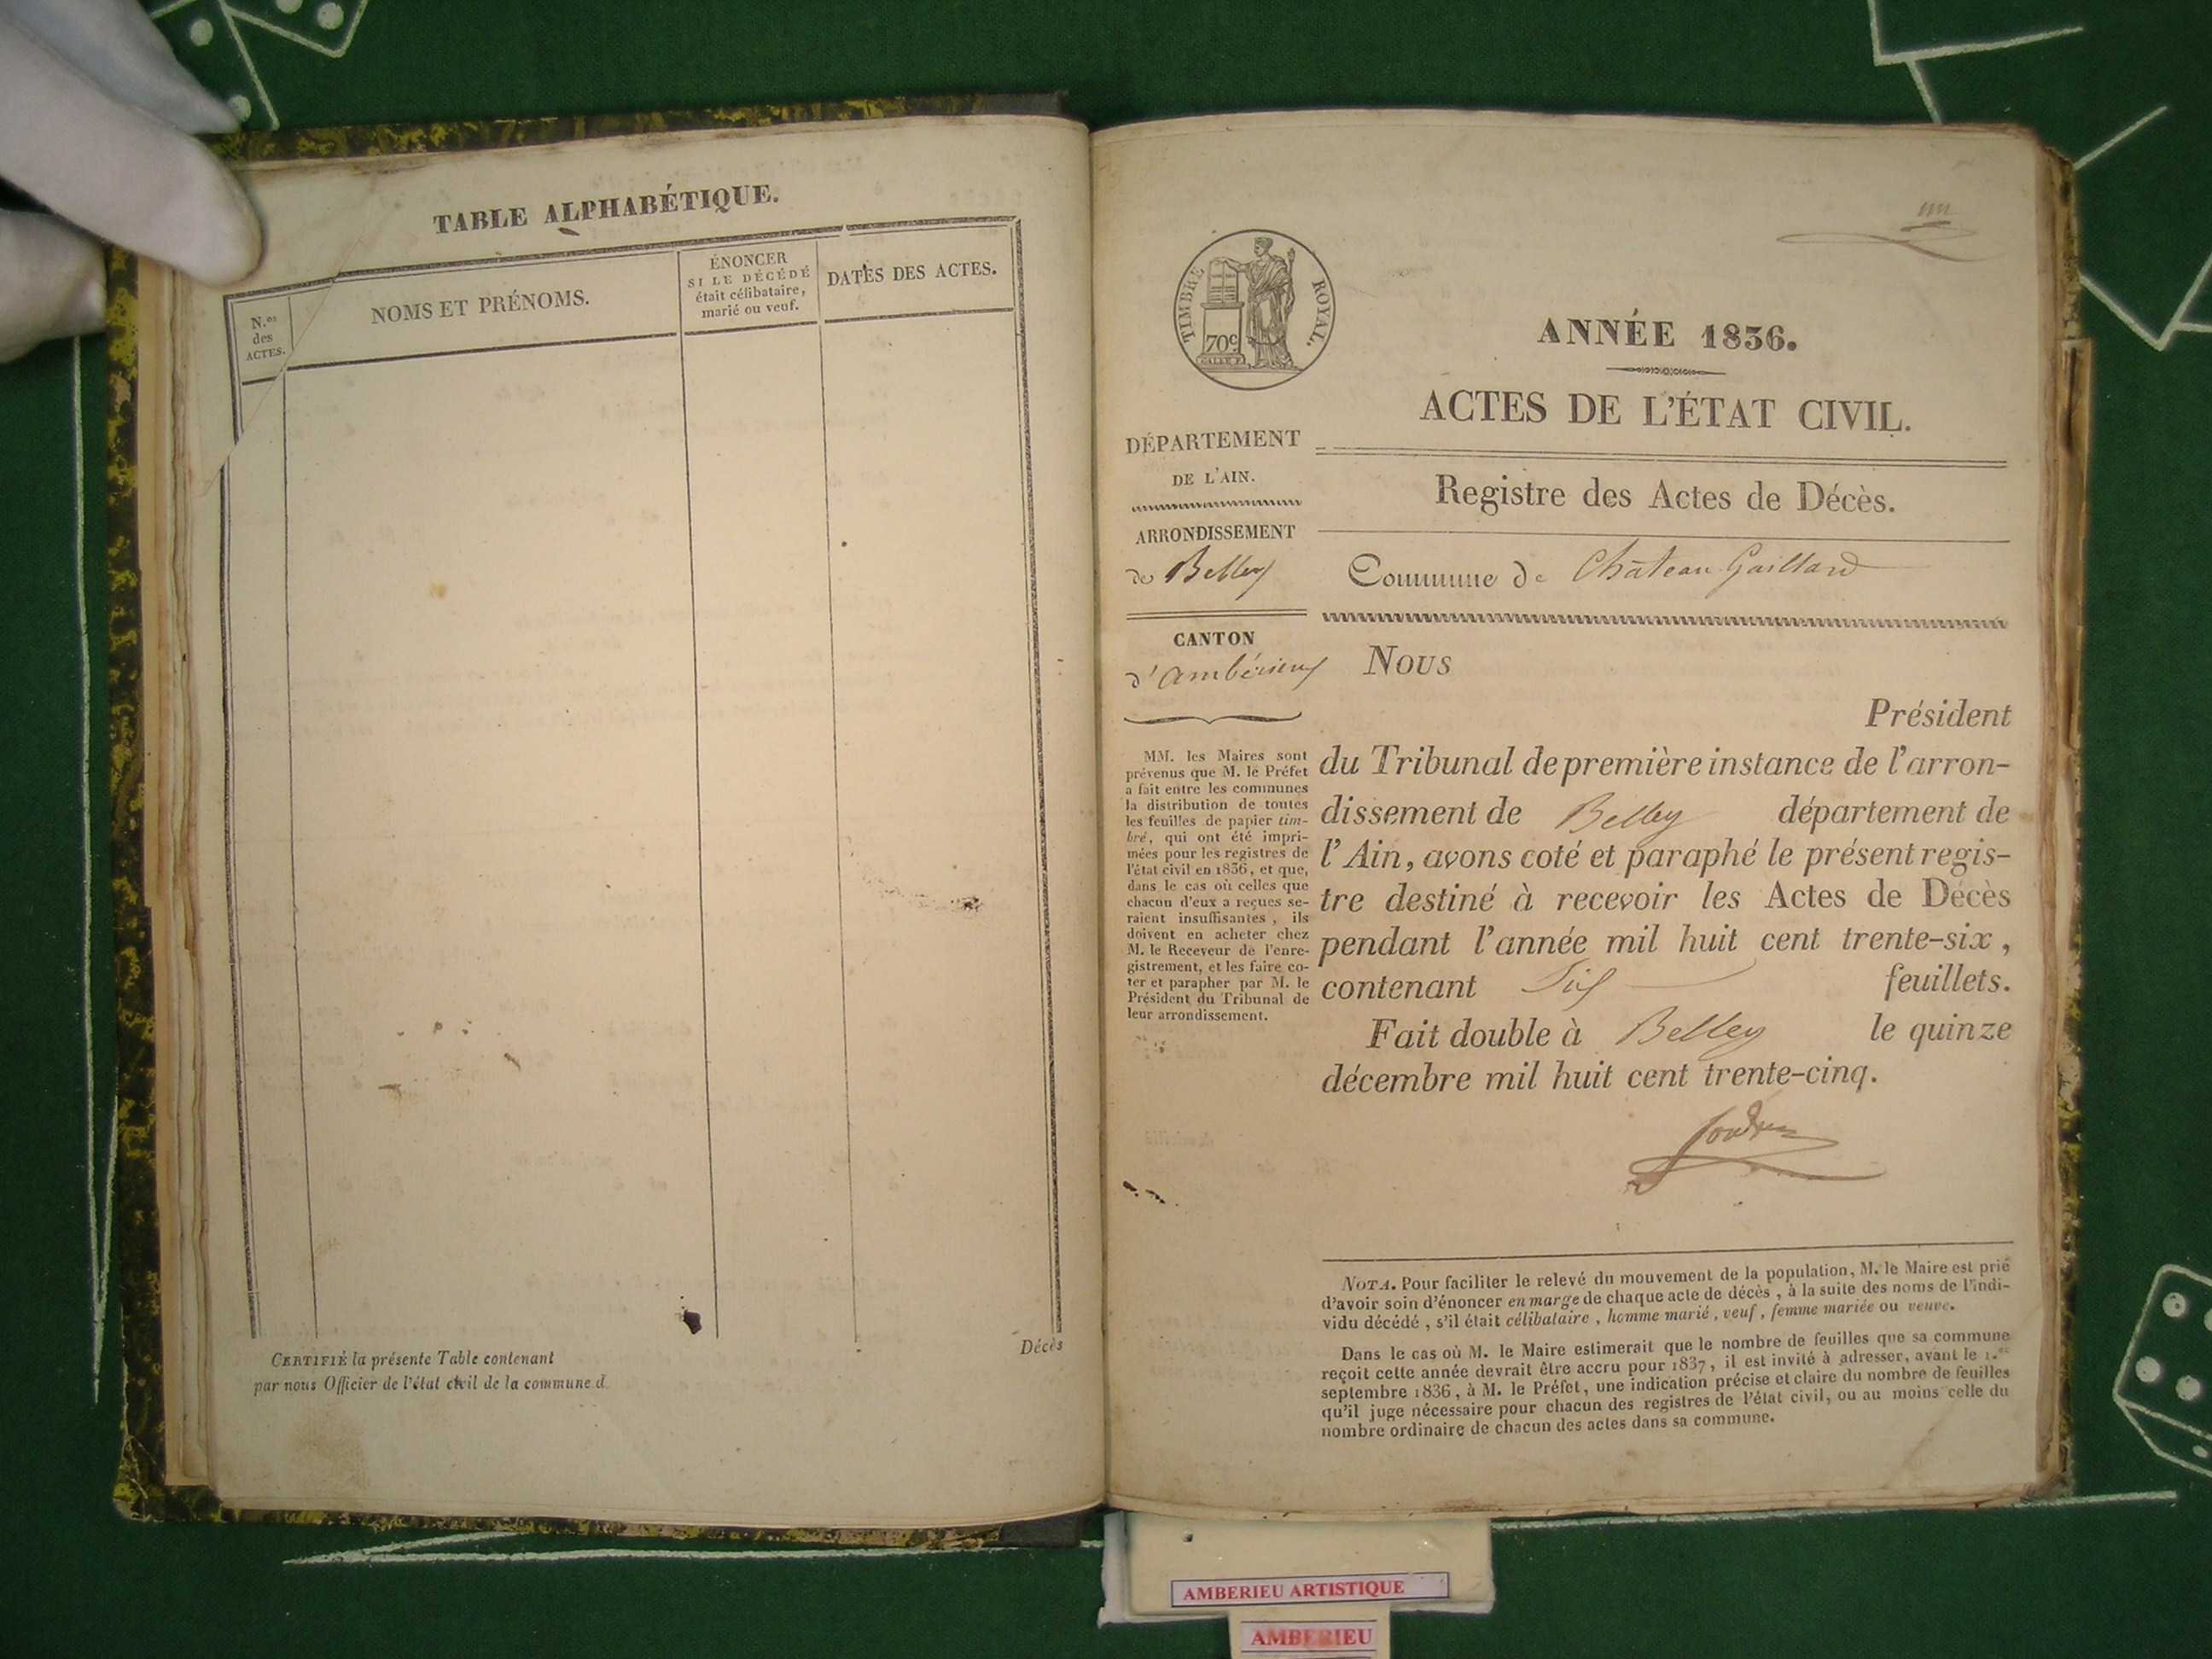 TABLE ALPHABÉTIQUE.
N.os
des
ACTES.
NOMS ET PRÉNOMS.
ÉNONCER
SI LE DÉCÉDÉ
était célibataire,
marié ou veuf.
DATES DES ACTES.
Décès
CERTIFIÉ la présente Table contenant
par nous Officier de l'état civil de la commune d
TIMBRE ROYAL.
70c
ANNÉE 1836.
ACTES DE L'ÉTAT CIVIL.
DÉPARTEMENT
DE L'AIN.
Registre des Actes de Décès.
ARRONDISSEMENT
de Belley
Commune de Château Gaillard
CANTON
d'Ambérieux
MM. les Maires sont
prévenus que M. le Préfet
a fait entre les communes
la distribution de toutes
les feuilles de papier tim-
bré, qui ont été impri-
mées pour les registres de
l'état civil en 1836, et que,
dans le cas où celles que
chacun d'eux a reçues se-
raient insuffisantes, ils
doivent en acheter chez
M. le Receveur de l'enre-
gistrement, et les faire co-
ter et parapher par M. le
Président du Tribunal de
leur arrondissement.
Nous
Président
du Tribunal de première instance de l'arron-
dissement de Belley département de
l'Ain, avons coté et paraphé le présent regis-
tre destiné à recevoir les Actes de Décès
pendant l'année mil huit cent trente-six,
contenant Six feuillets.
Fait double à Belley le quinze
décembre mil huit cent trente-cinq.
NOTA. Pour faciliter le relevé du mouvement de la population, M. le Maire est prié
d'avoir soin d'énoncer en marge de chaque acte de décès, à la suite des noms de l'indi-
vidu décédé, s'il était célibataire, homme marié, veuf, femme mariée ou veuve.
Dans le cas où M. le Maire estimerait que le nombre de feuilles que sa commune
reçoit cette année devrait être accru pour 1837, il est invité à adresser, avant le 1.er
septembre 1836, à M. le Préfet, une indication précise et claire du nombre de feuilles
qu'il juge nécessaire pour chacun des registres de l'état civil, ou au moins celle du
nombre ordinaire de chacun des actes dans sa commune.
AMBERIEU ARTISTIQUE
AMBERIEU